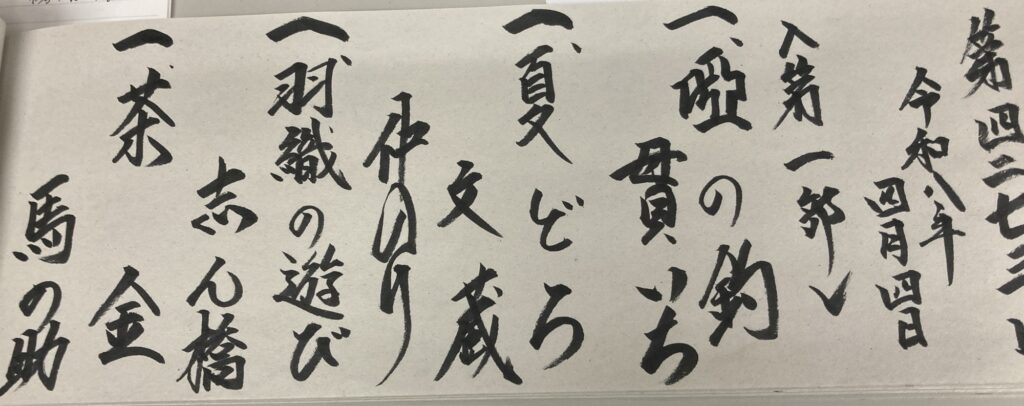 第四二七三
令和八年
四月四日
〽第一部〽
一、啞の釣
貫いち
一、夏どろ
文蔵
仲のり
一、羽織の遊び
志ん橋
一、茶金
馬の助